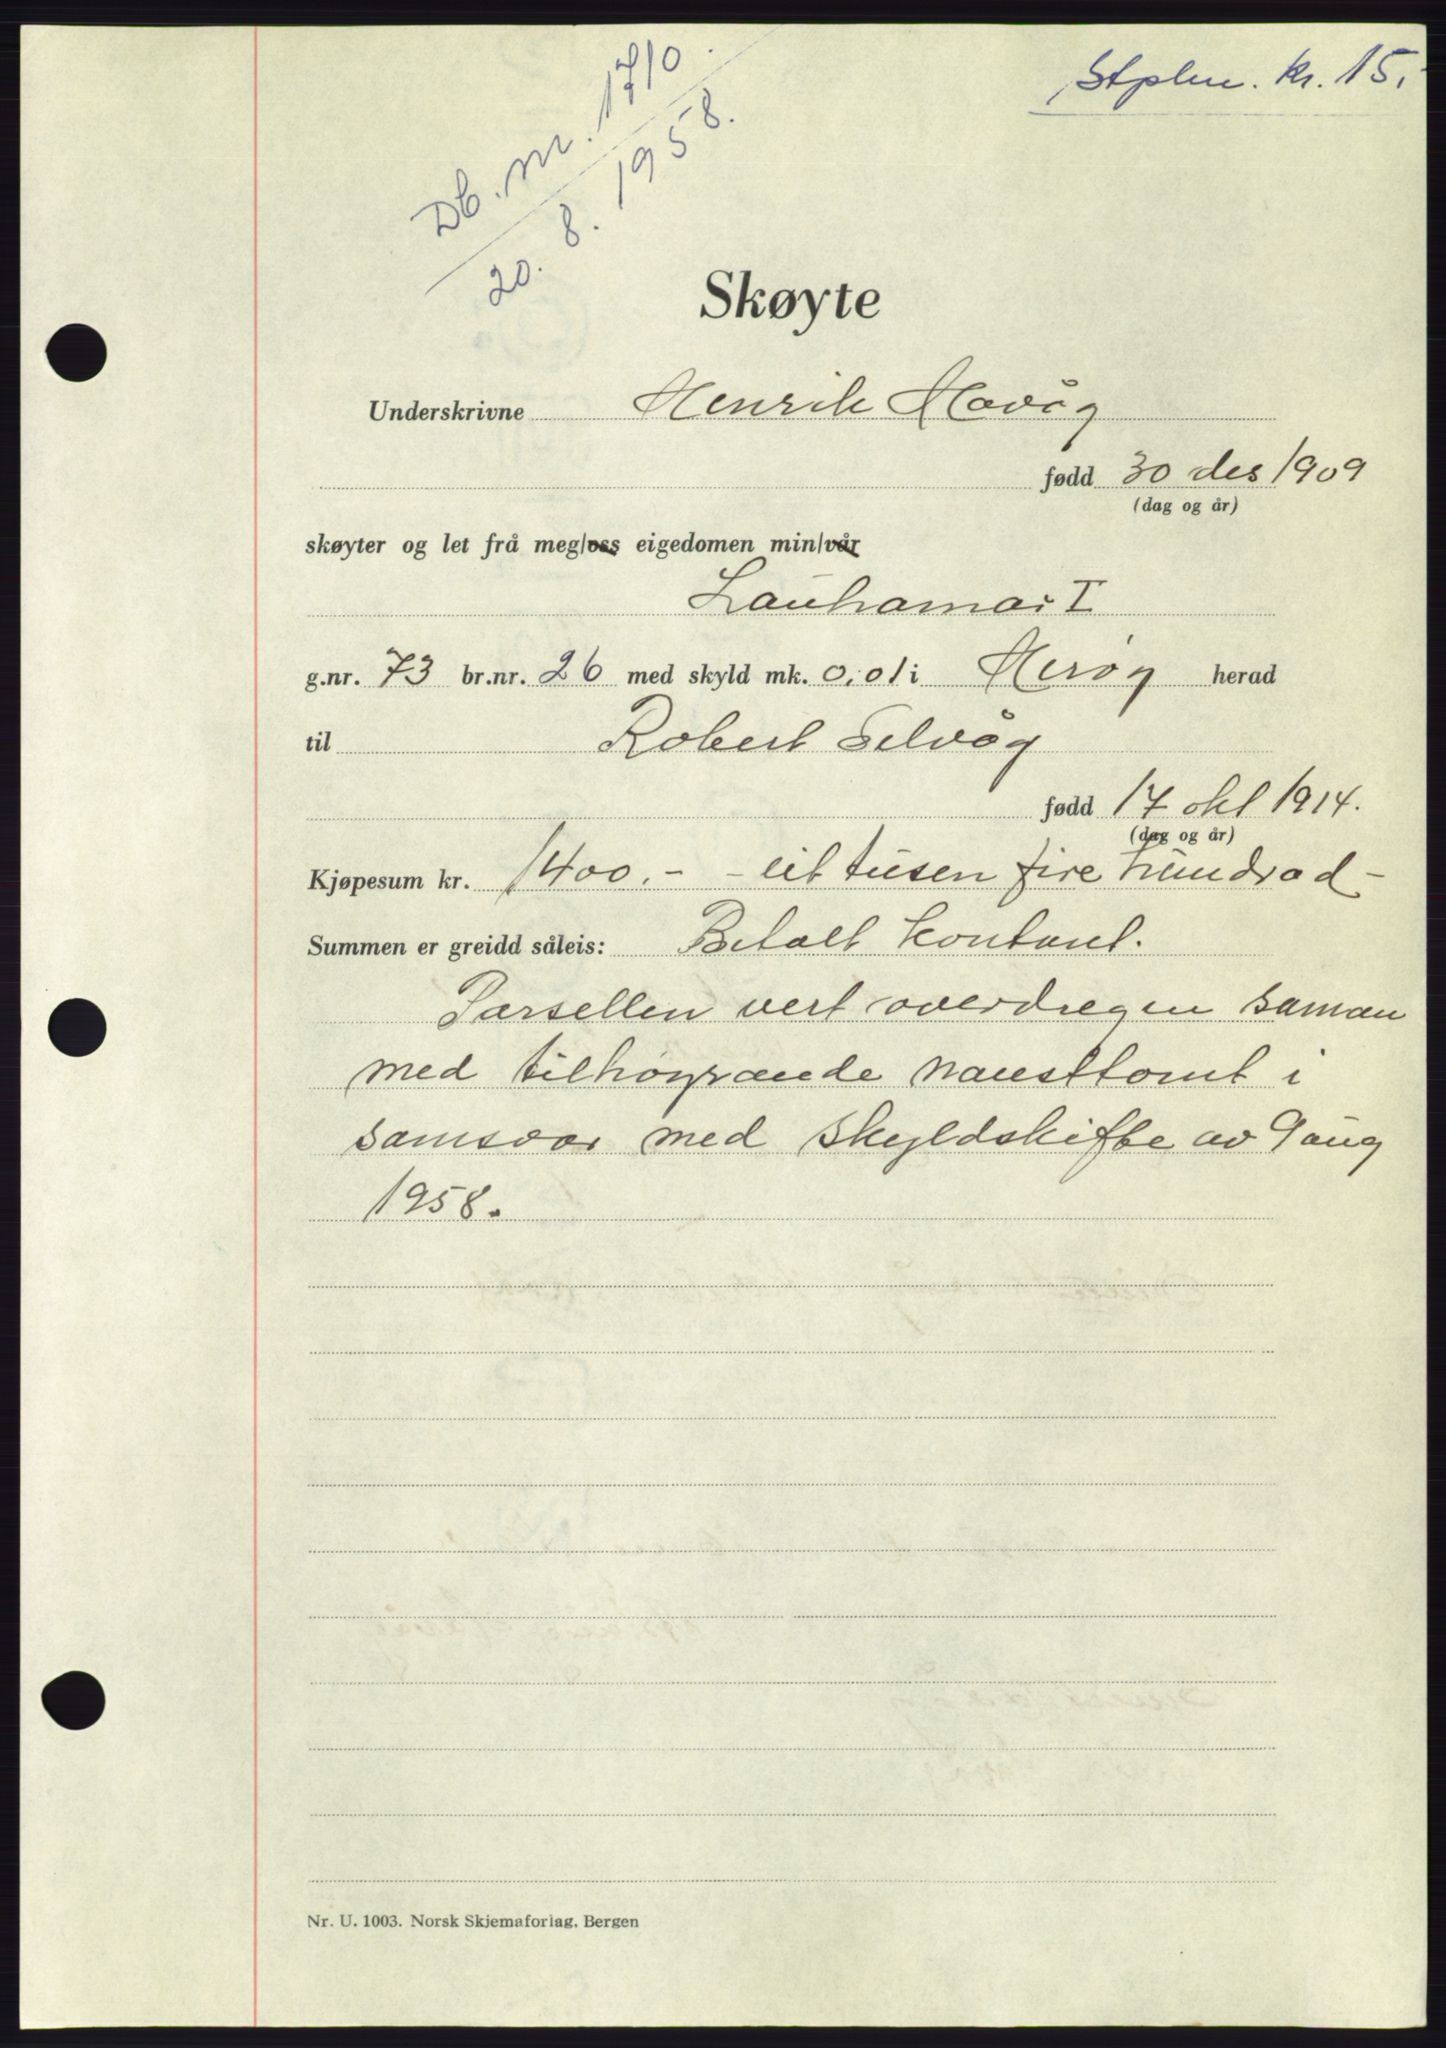 Stplm. kr. 15.
Db. nr. 1710
20. 8. 1958.
Skøyte
Underskrivne Henrik Håvåg
fødd 30 des 1909
(dag og år)
skøyter og let frå meg/oss eigedomen min/vår
Lauhamar I
g.nr. 73 br.nr. 26 med skyld mk. 0,01 i Herøy herad
til Robert Selvåg
fødd 17 okt 1914.
(dag og år)
Kjøpesum kr. 1400.- - eit tusen fire hundrad -
Summen er greidd såleis: Betalt kontant.
Parsellen vert overdregen saman
med tilhøyrande nausttomt i
samsvar med skyldskifte av 9 aug
1958.
Nr. U. 1003. Norsk Skjemaforlag. Bergen